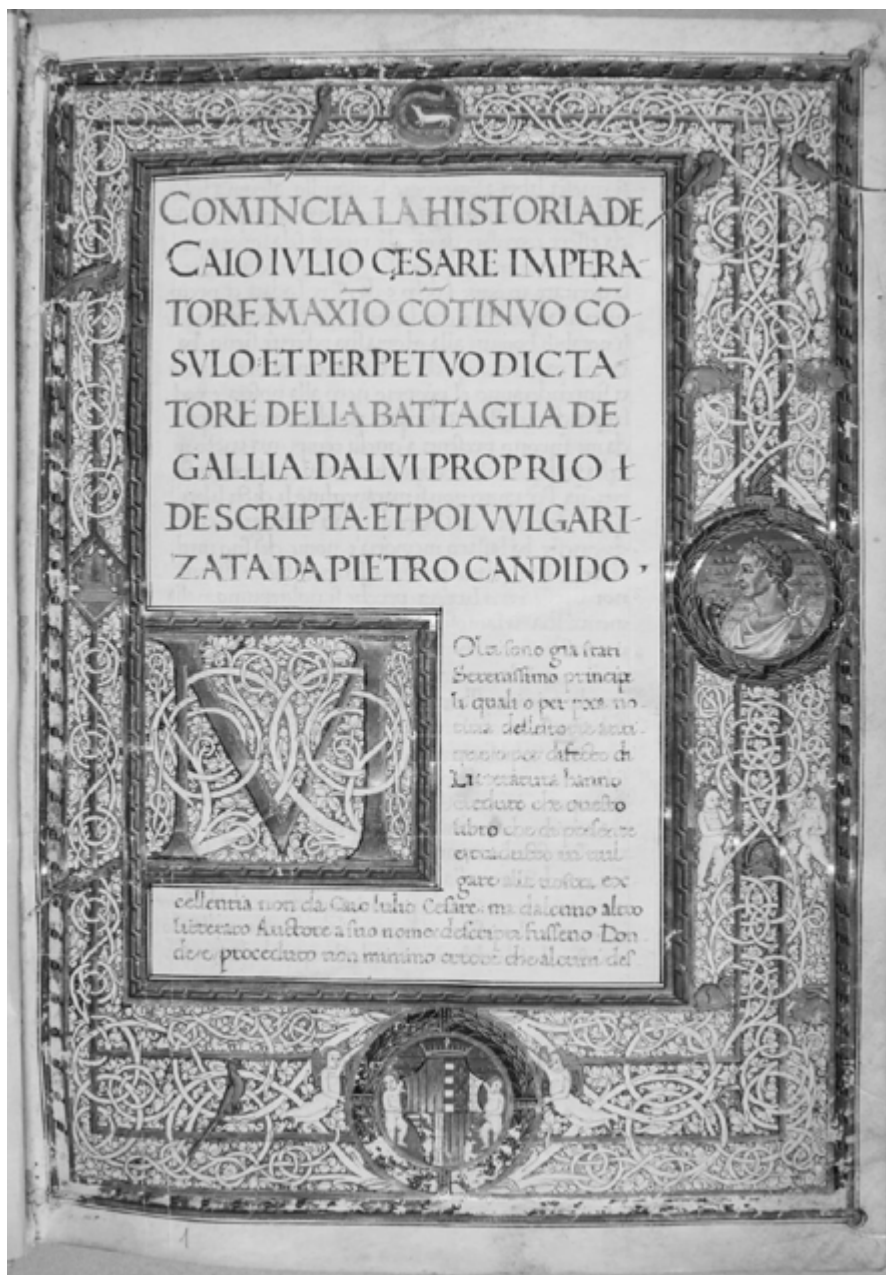 COMINCIA LA HISTORIA DE
CAIO IVLIO CESARE IMPERA-
TORE MAXIO COTINVO CO-
SVLO ET PERPETVO DICTA
TORE DELLA BATTAGLIA DE
GALLIA DALVI PROPRIO I
DESCRIPTA ET POI VVLGARI-
ZATA DA PIETRO CANDIDO
M
Olti sono gia stati
Serenissimo principe
li quali o per poca no
titia
difecto di
Litteratura hanno
creduto che questo
libro che de presente
vul
gare alla vostra ex
cellentia non da Caio Iulio Cesare ma dalcuno altro
litterato Auctore a suo nome descripti fusseno Don
de e proceduto non minimo errore che alcuni des
1